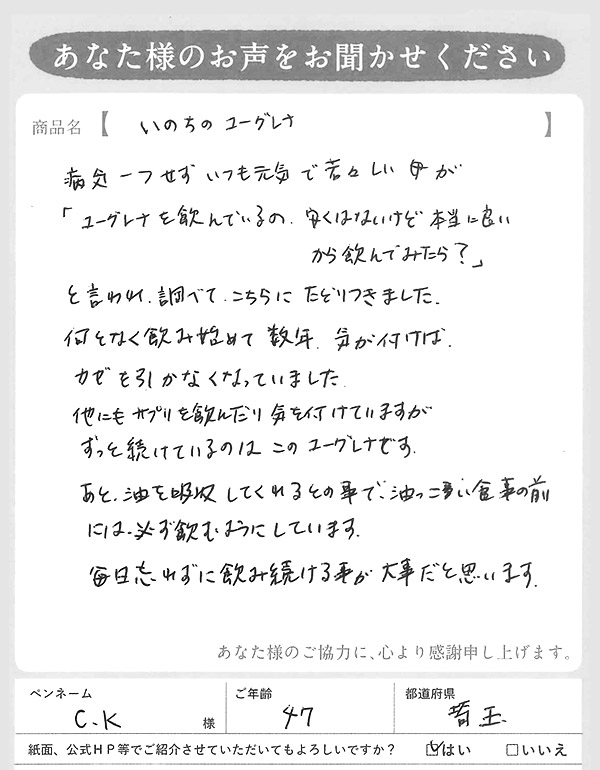 あなた様のお声をお聞かせください
商品名【 いのちのユーグレナ 】
病気一つせず いつも元気で若々しい 母が
「ユーグレナを飲んでいるの。安くはないけど 本当に良い
から飲んでみたら？」
と言われ、調べて、こちらに たどりつきました。
何となく飲み始めて 数年、気が付けば、
カゼを引かなくなっていました。
他にもサプリを飲んだり気を付けていますが
ずっと続けているのは このユーグレナです。
あと、油を吸収してくれるとの事で、油っこ多い食事の前
には、必ず飲むようにしています。
毎日忘れずに飲み続ける事が 大事だと思います。
あなた様のご協力に、心より感謝申し上げます。
ペンネーム ご年齢 都道府県
C.K 様 47 埼玉
紙面、公式HP等でご紹介させていただいてもよろしいですか？ ☑はい □いいえ